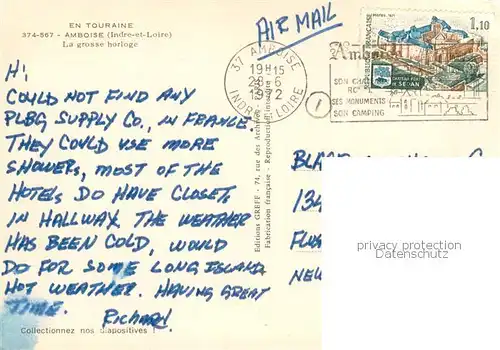 EN TOURAINE
374-567 - AMBOISE (Indre-et-Loire)
La grosse horloge
AIR MAIL
37 AMBOISE
19H15
28-6
1972
INDRE LOIRE
1,10
REPUBLIQUE FRANCAISE
CHATEAU FORT
DE SEDAN
SON
SES MONUMENTS
SON CAMPING
HI
COULD NOT FIND ANY
PLBG SUPPLY CO., IN FRANCE.
THEY COULD USE MORE
SHOWERS, MOST OF THE
HOTELS DO HAVE CLOSET,
IN HALLWAY. THE WEATHER
HAS BEEN COLD, WOULD
DO FOR SOME LONG ISLAND
HOT WEATHER. HAVING GREAT
TIME.
Richard.
Collectionnez nos diapositives !
Editions GREFF - 74, rue des Archives
Fabrication française - Reproduction interdite
134
NEW
privacy protection
Datenschutz